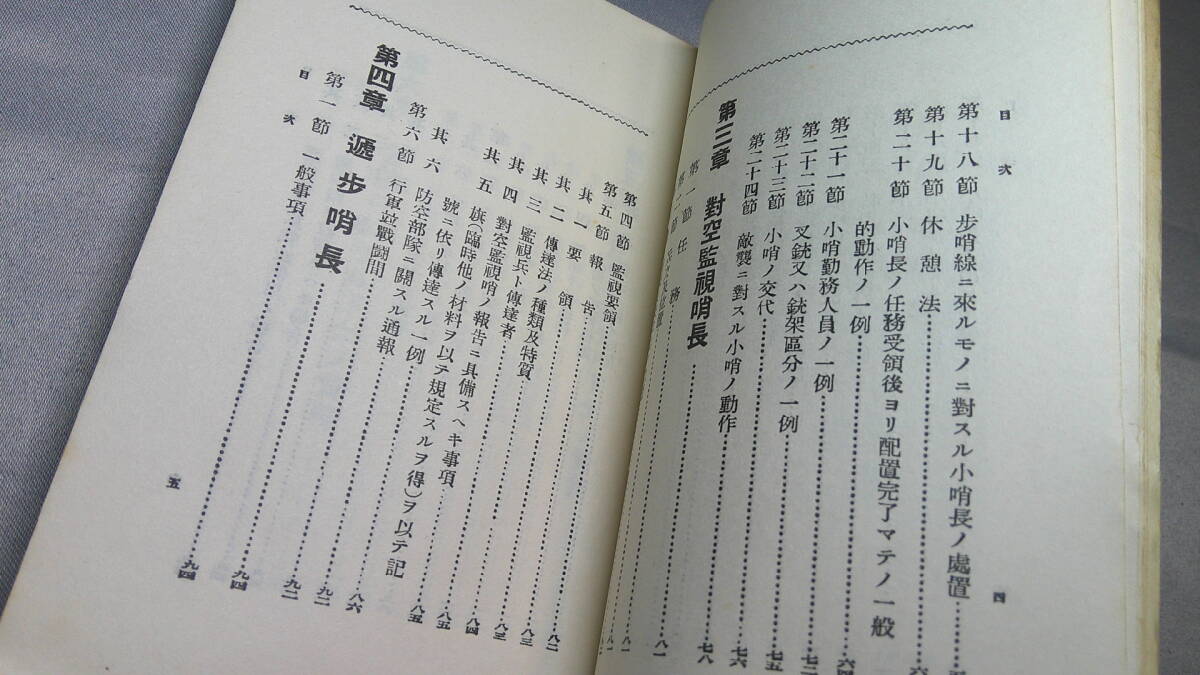 目次
第十八節 步哨線ニ來ルモノニ對スル小哨長ノ處置
第十九節 休憩法
第二十節 小哨長ノ任務受領後ヨリ配置完了マテノ一般
的動作ノ一例
第二十一節 小哨勤務人員ノ一例
第二十二節 叉銃又ハ銃架區分ノ一例
第二十三節 小哨ノ交代 七五
第二十四節 敵襲ニ對スル小哨ノ動作 七六
第三章 對空監視哨長 七八
第一節 任務 八一
四
第四節 監視要領 八一
第五節 報告
其一 要領 八二
其二 傳達法ノ種類及特質 八三
其三 監視兵ト傳達者 八三
其四 對空監視哨ノ報告ニ具備スヘキ事項 八四
其五 旗(臨時他ノ材料ヲ以テ規定スルヲ得)ヲ以テ記
號ニ依リ傳達スル一例 八五
其六 防空部隊ニ關スル通報 八六
第六節 行軍竝戰鬪間 九二
第四章 遞步哨長 九四
第一節 一般事項 九四
目次
五